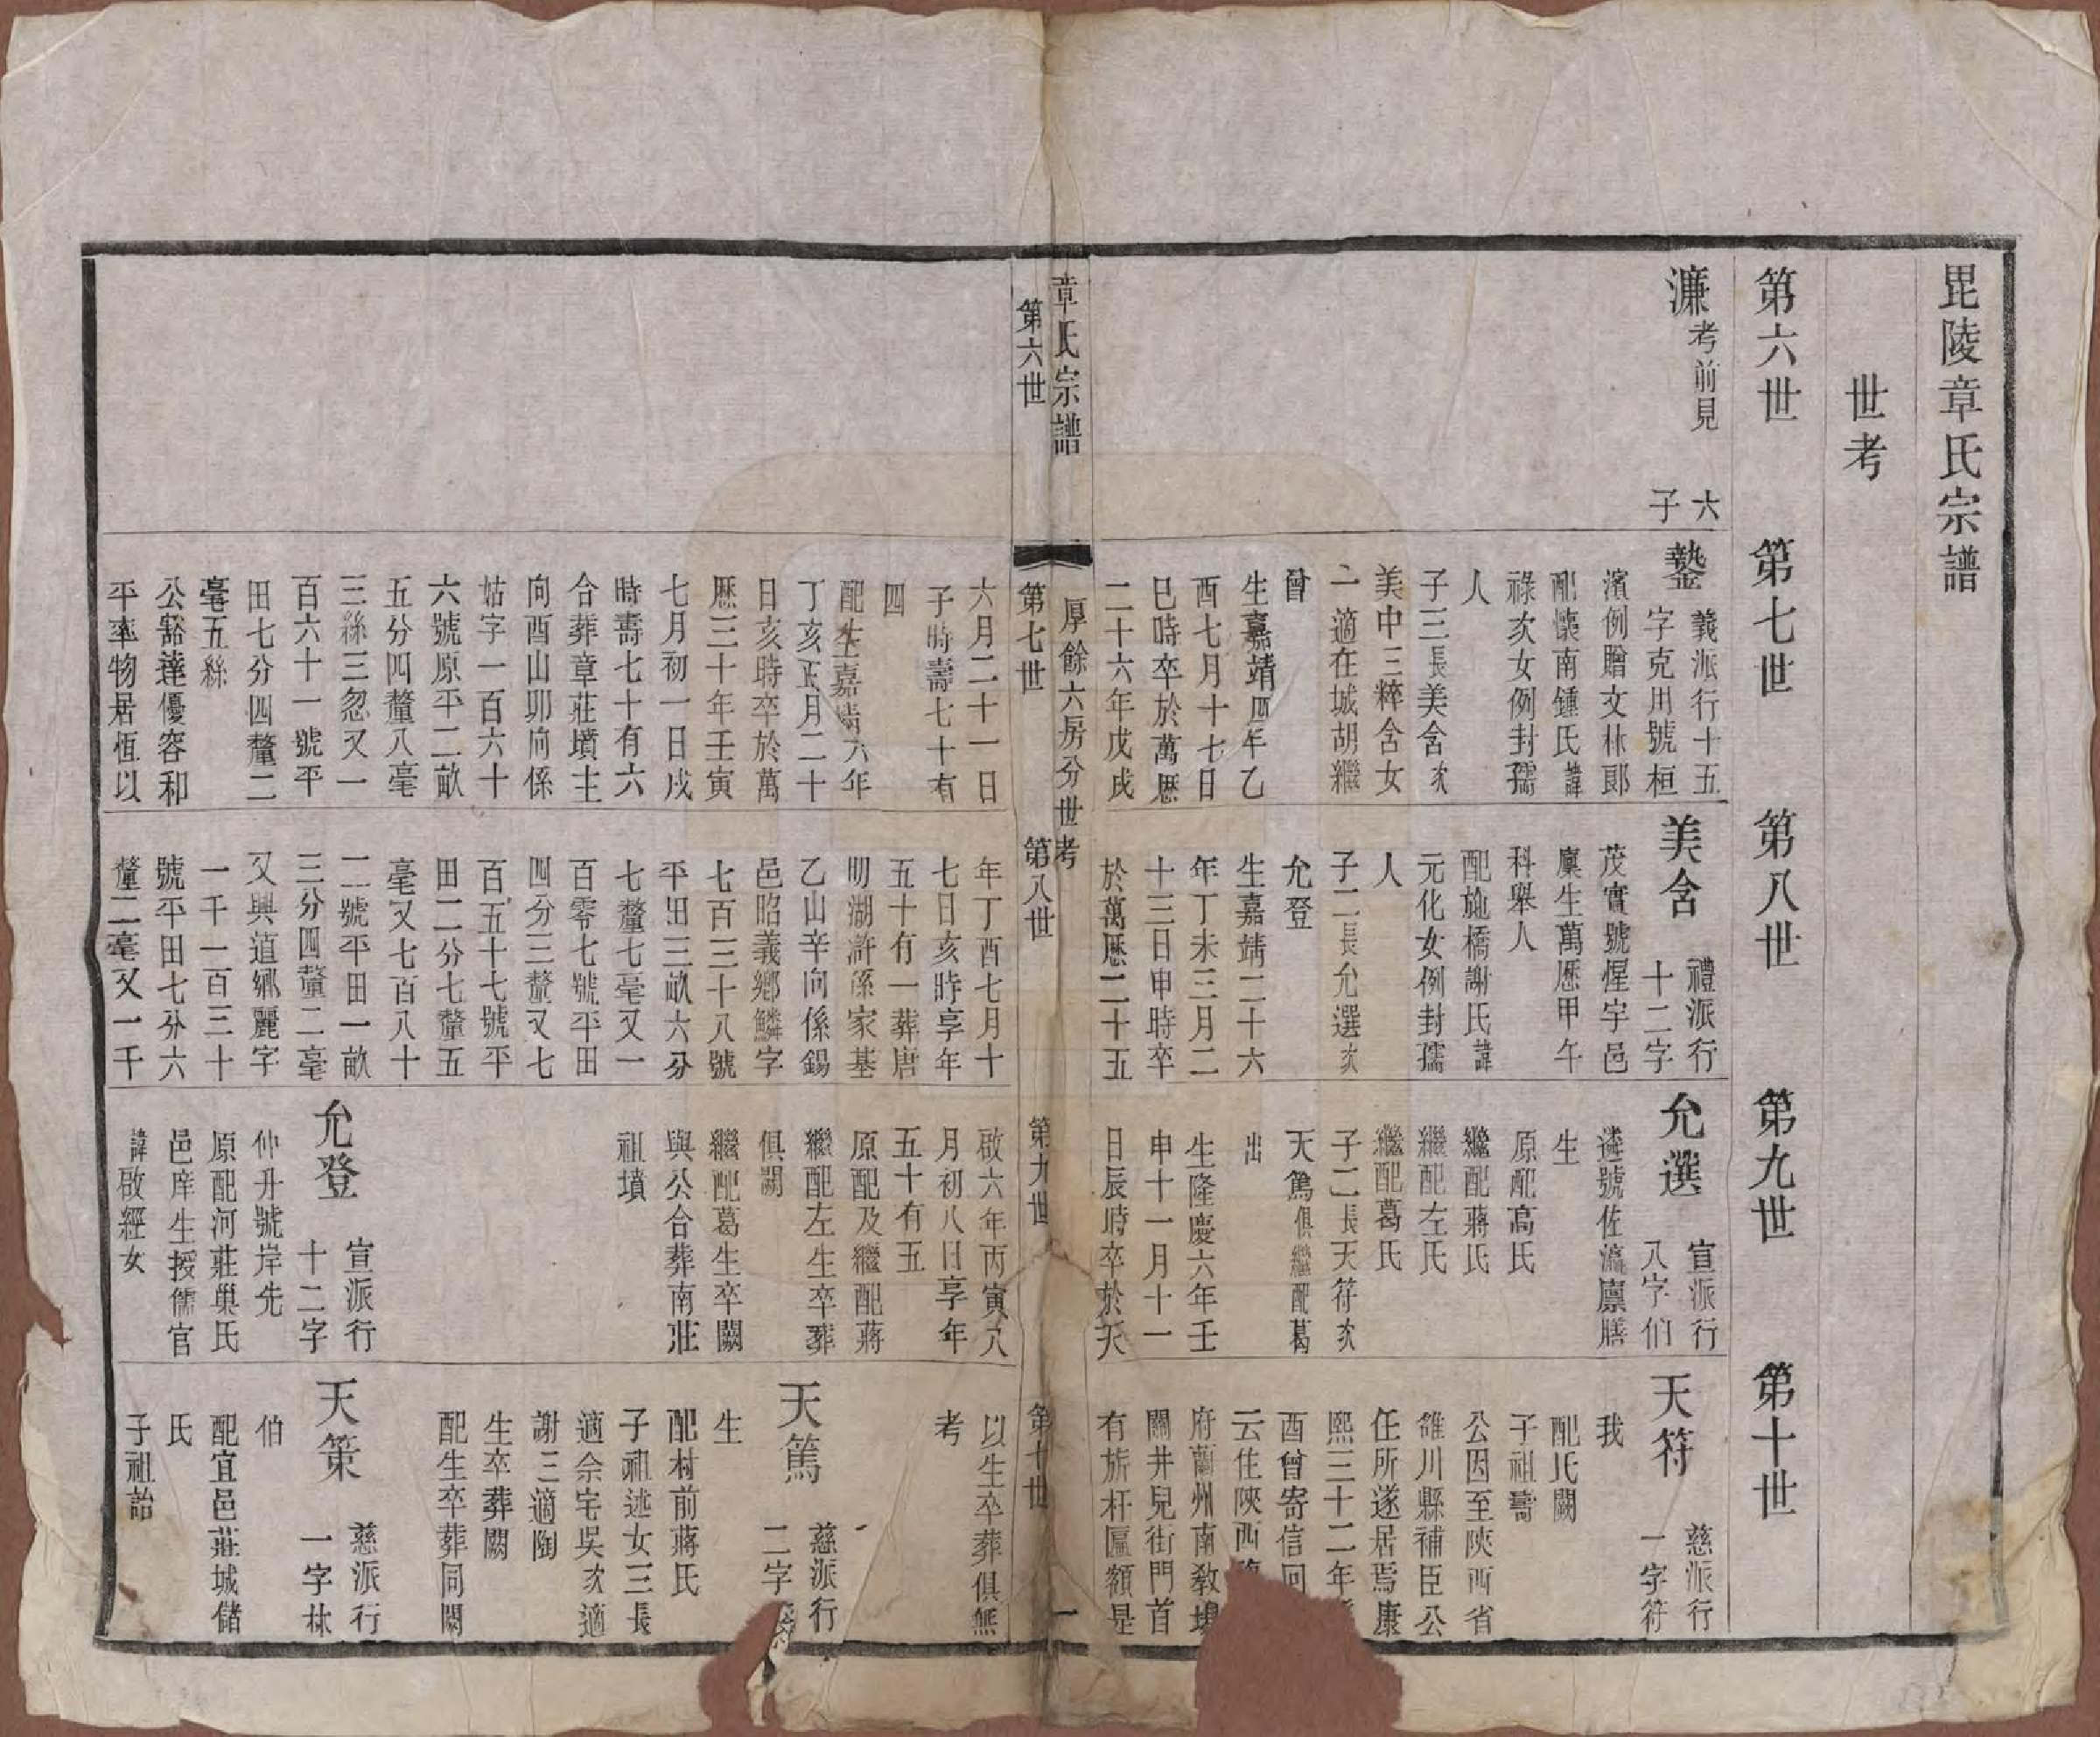 毘陵章氏宗譜
世考
第六世
第七世
第八世
第九世
第十世
濂
考前見
六
子
鏊
義派行十五
字克用號桓
濱例贈文林郎
配懷南鍾氏諱
祿次女例封孺
人
子三長美含次
美中三粹含女
一適在城胡繼
曾
生嘉靖四年乙
酉七月十七日
巳時卒於萬歷
二十六年戊戌
六月二十一日
子時壽七十有
四
配生嘉靖六年
丁亥正月二十
日亥時卒於萬
歷三十年壬寅
七月初一日戌
時壽七十有六
合葬章莊墳主
向酉山卯向係
姑字一百六十
六號原平二畝
五分四釐八毫
三絲三忽又一
百六十一號平
田七分四釐二
毫五絲
公豁達優容和
平率物居恆以
美含
禮派行
十二字
茂實號惺宇邑
廩生萬歷甲午
科舉人
配施橋謝氏諱
元化女例封孺
人
子二長允選次
允登
生嘉靖二十六
年丁未三月二
十三日申時卒
於萬歷二十五
年丁酉七月十
七日亥時享年
五十有一葬唐
明湖滸係家基
乙山辛向係錫
邑昭義鄉鱗字
七百三十八號
平田三畝六分
七釐七毫又一
百零七號平田
四分三釐又七
百五十七號平
田二分七釐五
毫又七百八十
二號平田一畝
三分四釐二毫
又興道鄉麗字
一千一百三十
號平田七分六
釐二毫又一千
允選
宣派行
八字伯
遴號佐瀛廩膳
生
原配高氏
繼配蔣氏
繼配左氏
繼配葛氏
子二長天符次
天篤俱繼配葛
出
生隆慶六年壬
申十一月十一
日辰時卒於天
啟六年丙寅八
月初八日享年
五十有五
原配及繼配蔣
繼配左生卒葬
俱闕
繼配葛生卒闕
與公合葬南莊
祖墳
允登
宣派行
十二字
仲升號岸先
原配河莊巢氏
邑庠生授儒官
諱啟經女
天符
慈派行
一字符
我
配氏闕
子祖壽
公因至陝西省
雒川縣補臣公
任所遂居焉康
熙三十二年
酉曾寄信回
云住陝西
府蘭州南教場
關井兒街門首
有旂杆匾額是
以生卒葬俱無
考
天篤
慈派行
二字
生
配村前蔣氏
子祖述女三長
適佘宅吳次適
謝三適陶
生卒葬闕
配生卒葬同闕
天策
慈派行
一字林
伯
配宜邑莊城儲
氏
子祖詒
章氏宗譜
厚餘六房分世考
第六世
第七世
第八世
第九世
第十世
一